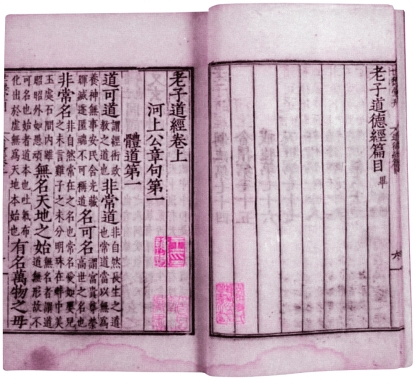 老子道德經篇目 畢
老子道經卷上
河上公章句第一
體道第一
道可道謂經術政教之道也非常道非自然長生之道也常道當以無為
養神無事安民含光藏暉滅迹匿端不可稱道名可名謂富貴尊榮高世之名也
非常名非自然常在之名也常名當如嬰兒之未言雞子之未分明珠在蚌中美
玉處石間內雖昭昭外如愚頑無名天地之始無名者謂道道無形故不
可名也始者道本也吐氣布化出於虛無為天地本始也有名萬物之母